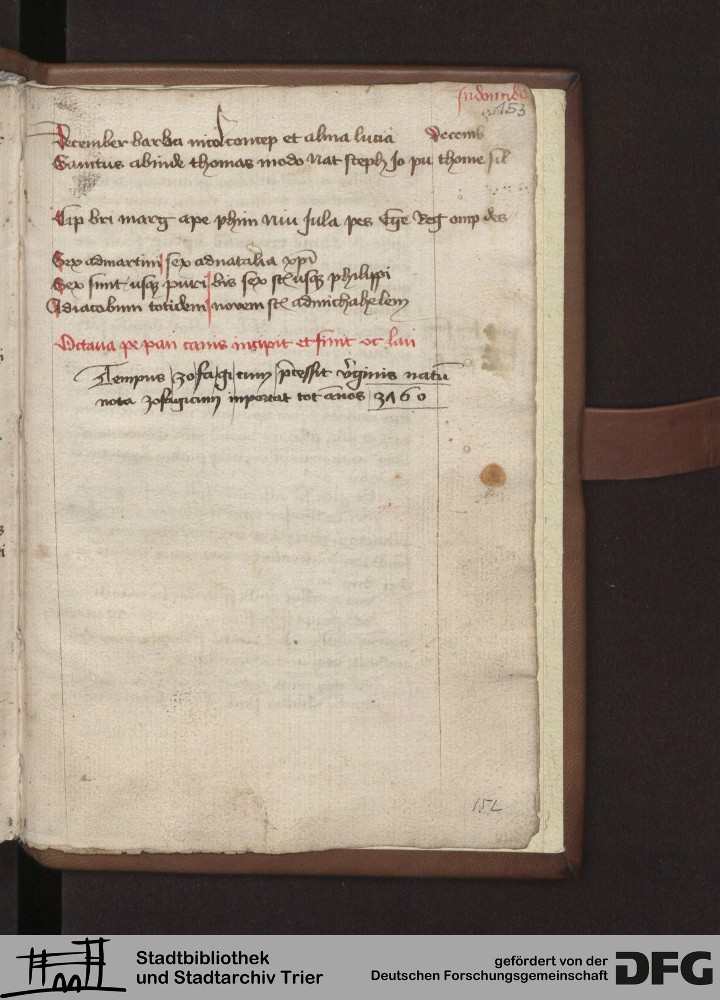 153
December barba nicol concep et alma lucia Decemb
Sanctus abinde thomas modo Nat steph Jo pu thome sil
Cisp bri marg ape phim niu Jula pes Reg omp des
Sex ad martini sex ad natalia xpi
Sex sunt usq puri bis sex st usq philippi
Ad iacobum totidem novem st ad michahelem
Octava pe pau canis incipit et finit oc lau
Tempus zofagicum pcessit vginis natu
nota zofagicum inportat tot annos 3160
152
Stadtbibliothek
und Stadtarchiv Trier
gefördert von der
Deutschen Forschungsgemeinschaft
DFG